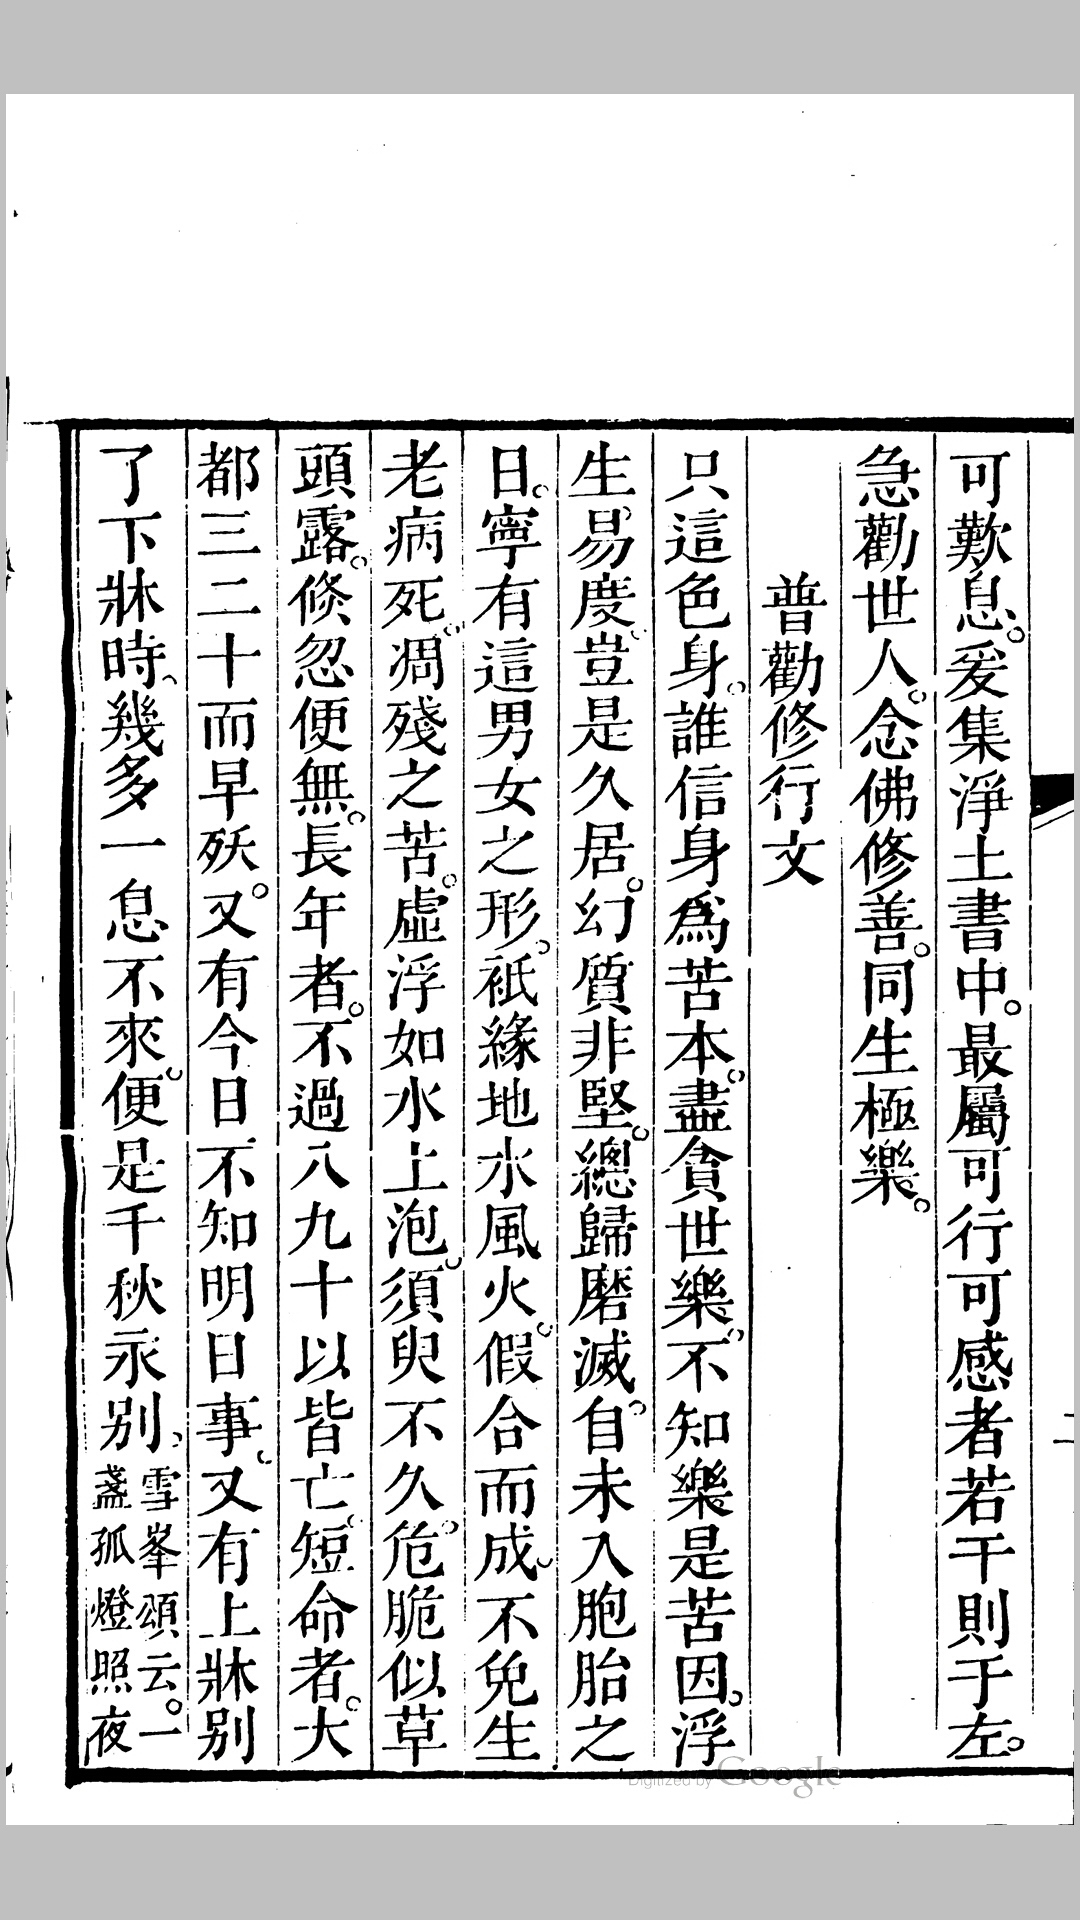 可歎息。爰集淨土書中。最屬可行可感者若干則于左。
急勸世人。念佛修善。同生極樂。
普勸修行文
只這色身。誰信身爲苦本。盡貪世樂。不知樂是苦因。浮
生易度。豈是久居。幻質非堅。總歸磨滅。自未入胞胎之
日。寧有這男女之形。祇緣地水風火。假合而成。不免生
老病死。凋殘之苦。虛浮如水上泡。須臾不久。危脆似草
頭露。倏忽便無。長年者。不過八九十以皆亡。短命者。大
都三二十而早殀。又有今日不知明日事。又有上牀別
了下牀時。幾多一息不來。便是千秋永別。
雪峯頌云。一
盞孤燈照夜
Digitized by Google